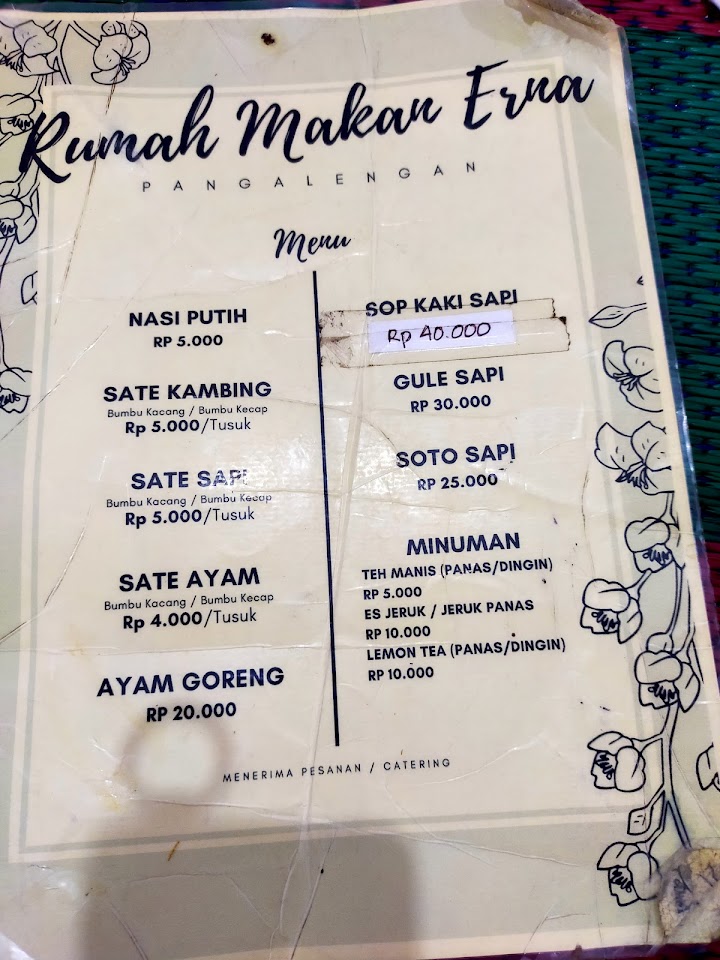 Rumah Makan Erna
PANGALENGAN
Menu
NASI PUTIH
RP 5.000
SATE KAMBING
Bumbu Kacang / Bumbu Kecap
Rp 5.000/Tusuk
SATE SAPI
Bumbu Kacang / Bumbu Kecap
Rp 5.000/Tusuk
SATE AYAM
Bumbu Kacang / Bumbu Kecap
Rp 4.000/Tusuk
AYAM GORENG
RP 20.000
SOP KAKI SAPI
Rp 40.000
GULE SAPI
RP 30.000
SOTO SAPI
RP 25.000
MINUMAN
TEH MANIS (PANAS/DINGIN)
RP 5.000
ES JERUK / JERUK PANAS
RP 10.000
LEMON TEA (PANAS/DINGIN)
RP 10.000
MENERIMA PESANAN / CATERING